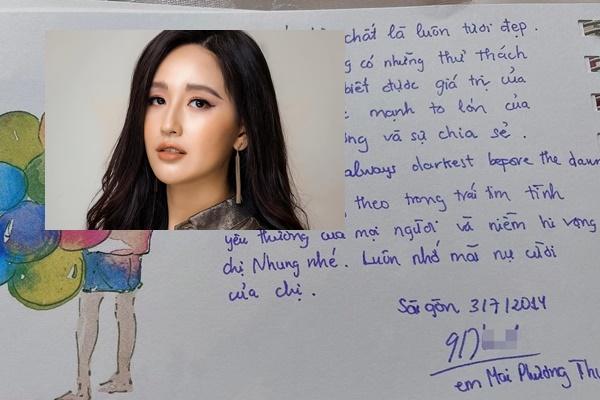 chất là luôn tươi đẹp.
có những thử thách
biết được giá trị của
mạnh to lớn của
và sự chia sẻ.
always darkest before the dawn
theo trong trái tim tình
yêu thương của mọi người và niềm hi vọng
chị Nhung nhé. Luôn nhớ mãi nụ cười
của chị.
Sài gòn 3/7/2014
em Mai Phương Thu